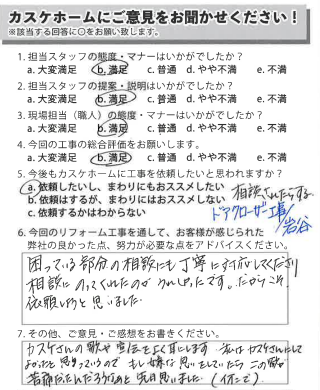 カスケホームにご意見をお聞かせください！
※該当する回答に○をお願い致します。
1. 担当スタッフの態度・マナーはいかがでしたか？
a. 大変満足 b. 満足 c. 普通 d. やや不満 e. 不満
2. 担当スタッフの提案・説明はいかがでしたか？
a. 大変満足 b. 満足 c. 普通 d. やや不満 e. 不満
3. 現場担当（職人）の態度・マナーはいかがでしたか？
a. 大変満足 b. 満足 c. 普通 d. やや不満 e. 不満
4. 今回の工事の総合評価をお願いします。
a. 大変満足 b. 満足 c. 普通 d. やや不満 e. 不満
5. 今後もカスケホームに工事を依頼したいと思われますか？
a. 依頼したいし、まわりにもおススメしたい
相談されたらする
b. 依頼はするが、まわりにはおススメしない
c. 依頼するかはわからない
ドアクローザー工事
岩谷
6. 今回のリフォーム工事を通して、お客様が感じられた
弊社の良かった点、努力が必要な点をアドバイスください。
困っている部分の相談にも丁寧に対応してくださり
相談にのってくれたのが うれしかったです。だからこそ
依頼しようと思いました
7. その他、ご意見・ご感想をお書きください。
カスケさんの
よかったと思っているので